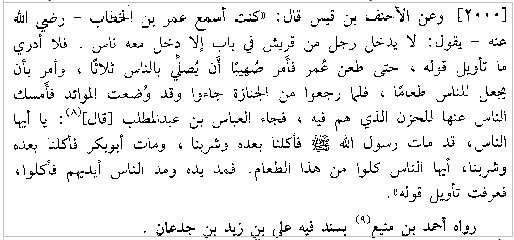 [٢٠٠٠] وعن الأحنف بن قيس قال: «كنت أسمع عمر بن الخطاب - رضي الله
عنه - يقول: لا يدخل رجل من قريش في باب إلا دخل معه ناس . فلا أدري
ما تأويل قوله ، حتى طعن عُمر فأَمر صُهيبًا أَن يُصلِّي بالناس ثلاثًا ، وأمر بأن
يجعل للناس طعامًا ، فلما رجعوا من الجنازة جاءوا وقد وُضعت الموائد فأمسك
الناس عنها للحزن الذي هم فيه ، فجاء العباس بن عبدالمطلب [قال](٨): يا أيها
الناس، قد مات رسول الله ﷺ فأكلنا بعده وشربنا ، ومات أبوبكر فأكلنا بعده
وشربنا، أيها الناس كلوا من هذا الطعام. فمد يده ومد الناس أيديهم فأكلوا،
فعرفت تأويل قوله».
رواه أحمد بن منيع(٩) بسند فيه علي بن زيد بن جدعان .